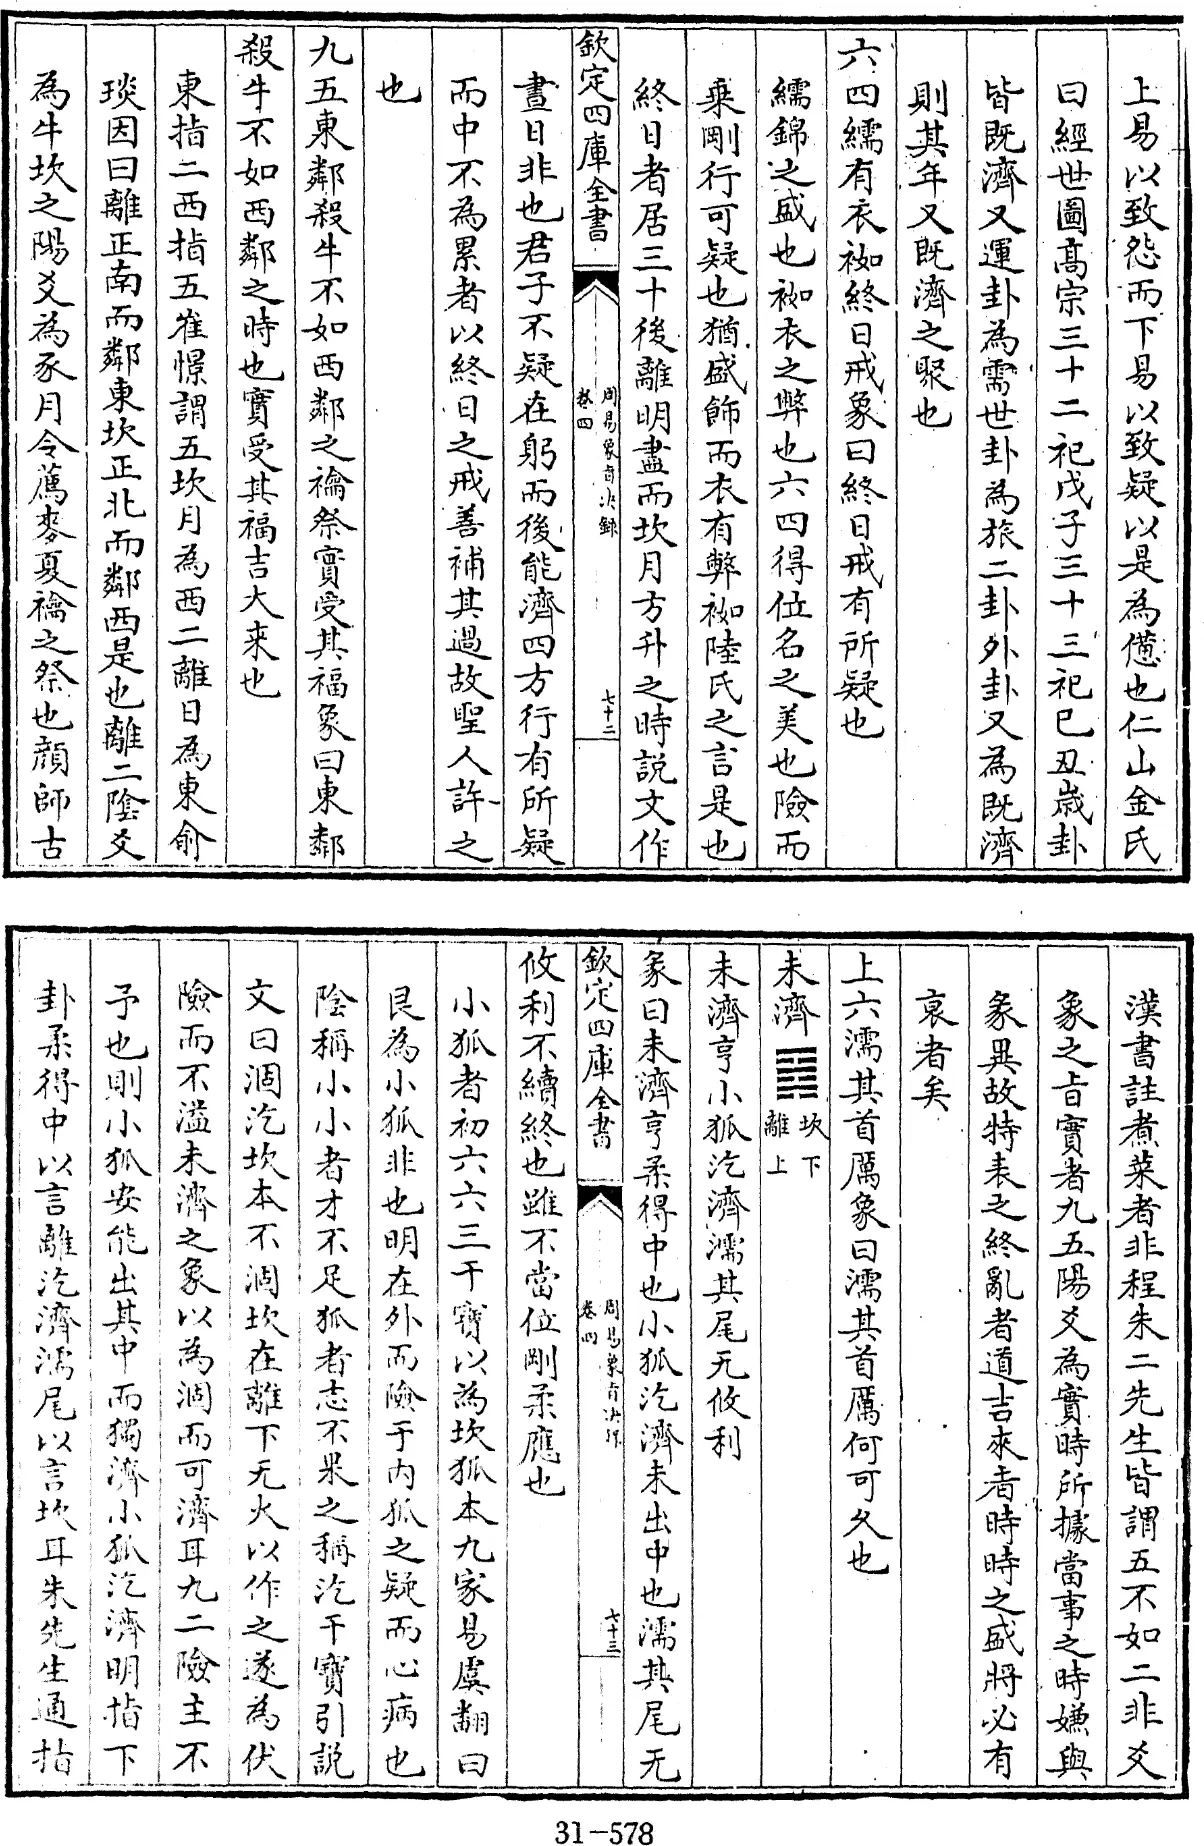 上易以致怨而下易以致疑以是為憊也仁山金氏
曰經世圖髙宗三十二祀戊子三十三祀巳丑嵗卦
皆既濟又運卦為需世卦為旅二卦外卦又為既濟
則其年又既濟之聚也
六四繻有衣袽終日戒象曰終日戒有所疑也
繻錦之盛也袽衣之弊也六四得位名之美也險而
乗剛行可疑也猶盛飾而衣有弊袽陸氏之言是也
終日者居三十後離明盡而坎月方升之時説文作
欽定四庫全書
周易象旨决録
卷四
七十二
晝日非也君子不疑在躬而後能濟四方行有所疑
而中不為累者以終日之戒善補其過故聖人許之
也
九五東鄰殺牛不如西鄰之禴祭實受其福象曰東鄰
殺牛不如西鄰之時也實受其福吉大来也
東指二西指五崔憬謂五坎月為西二離日為東俞
琰因曰離正南而鄰東坎正北而鄰西是也離二隂爻
為牛坎之陽爻為豕月令薦麥夏禴之祭也顔師古
漢書註煮菜者非程朱二先生皆謂五不如二非爻
象之旨實者九五陽爻為實時所據當事之時嫌與
彖異故特表之終亂者道吉來者時時之盛將必有
衰者矣
上六濡其首厲象曰濡其首厲何可久也
未濟
坎下
離上
未濟亨小狐汔濟濡其尾无攸利
彖曰未濟亨柔得中也小狐汔濟未出中也濡其尾无
欽定四庫全書
周易象旨决録
卷四
七十三
攸利不續終也雖不當位剛柔應也
小狐者初六六三干寶以為坎狐本九家易虞翻曰
艮為小狐非也明在外而險于内狐之疑而心病也
隂稱小小者才不足狐者志不果之稱汔干寶引説
文曰涸汔坎本不涸坎在離下无火以作之遂為伏
險而不溢未濟之象以為涸而可濟耳九二險主不
予也則小狐安能出其中而獨濟小狐汔濟明指下
卦柔得中以言離汔濟濡尾以言坎耳朱先生通指
31-578